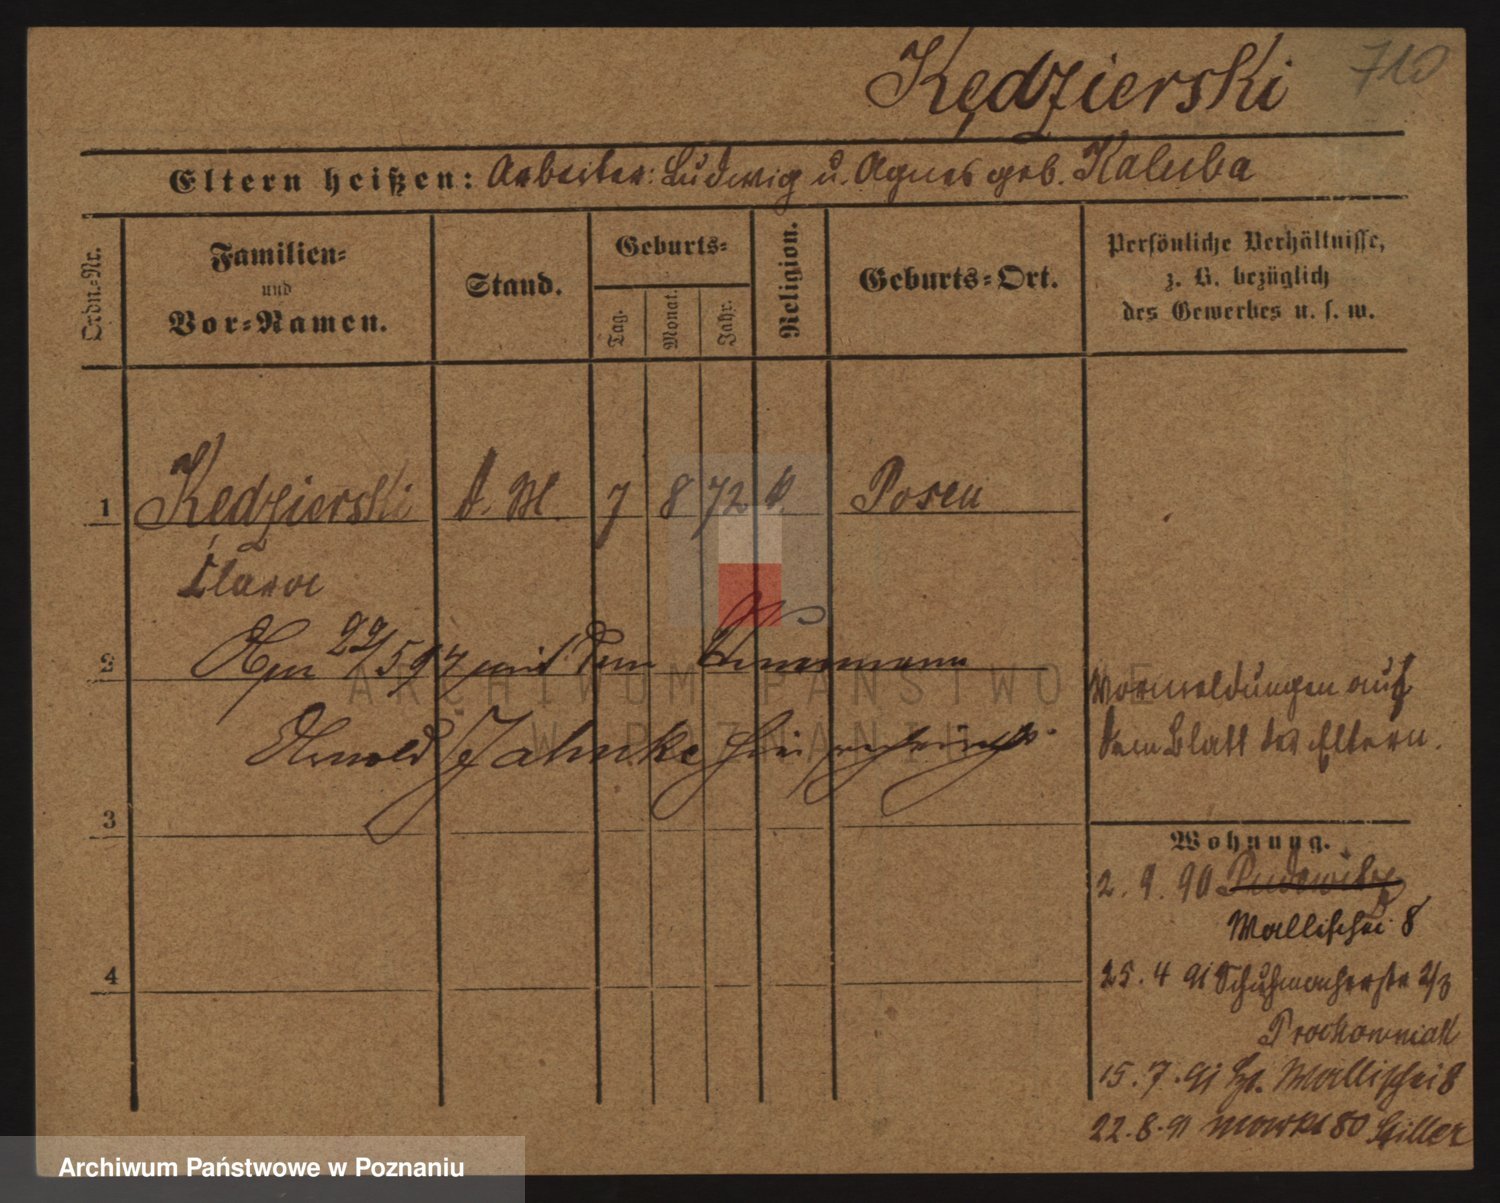 Kędzierski 710
Eltern heißen: Arbeiter: Ludwig u. Agnes geb. Kaluba
Ordn.-Nr.
Familien-
und
Vor-Namen.
Stand.
Geburts-
Tag.
Monat.
Jahr.
Religion.
Geburts-Ort.
Persönliche Verhältnisse,
z. B. bezüglich
des Gewerbes u. s. w.
1 Kędzierski d. M. 7 8 72 k. Posen
Clara
2 Am 22/5 97 mit dem
Arnold Jahnke
Vormeldungen auf
dem Blatt der Eltern.
3
Wohnung.
2. 9. 90 Pudewitz
Wallischei 8
4
25. 4 91 Schuhmacherstr 2/3
Prochowniak
15. 7. 91 Wallischei 8
22. 8. 91 Markt 80 Hiller
ARCHIWUM PAŃSTWOWE
W POZNANIU
Archiwum Państwowe w Poznaniu